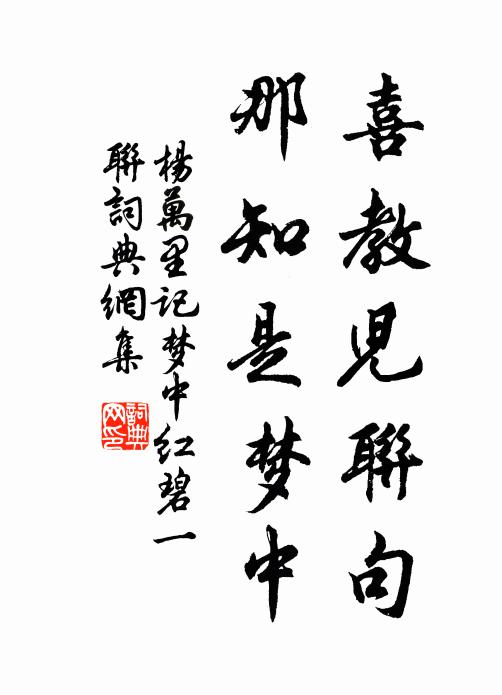 喜教兒聯句
那知是梦中
楊萬里记梦中红碧一
聯詞典網集
詞典
网印